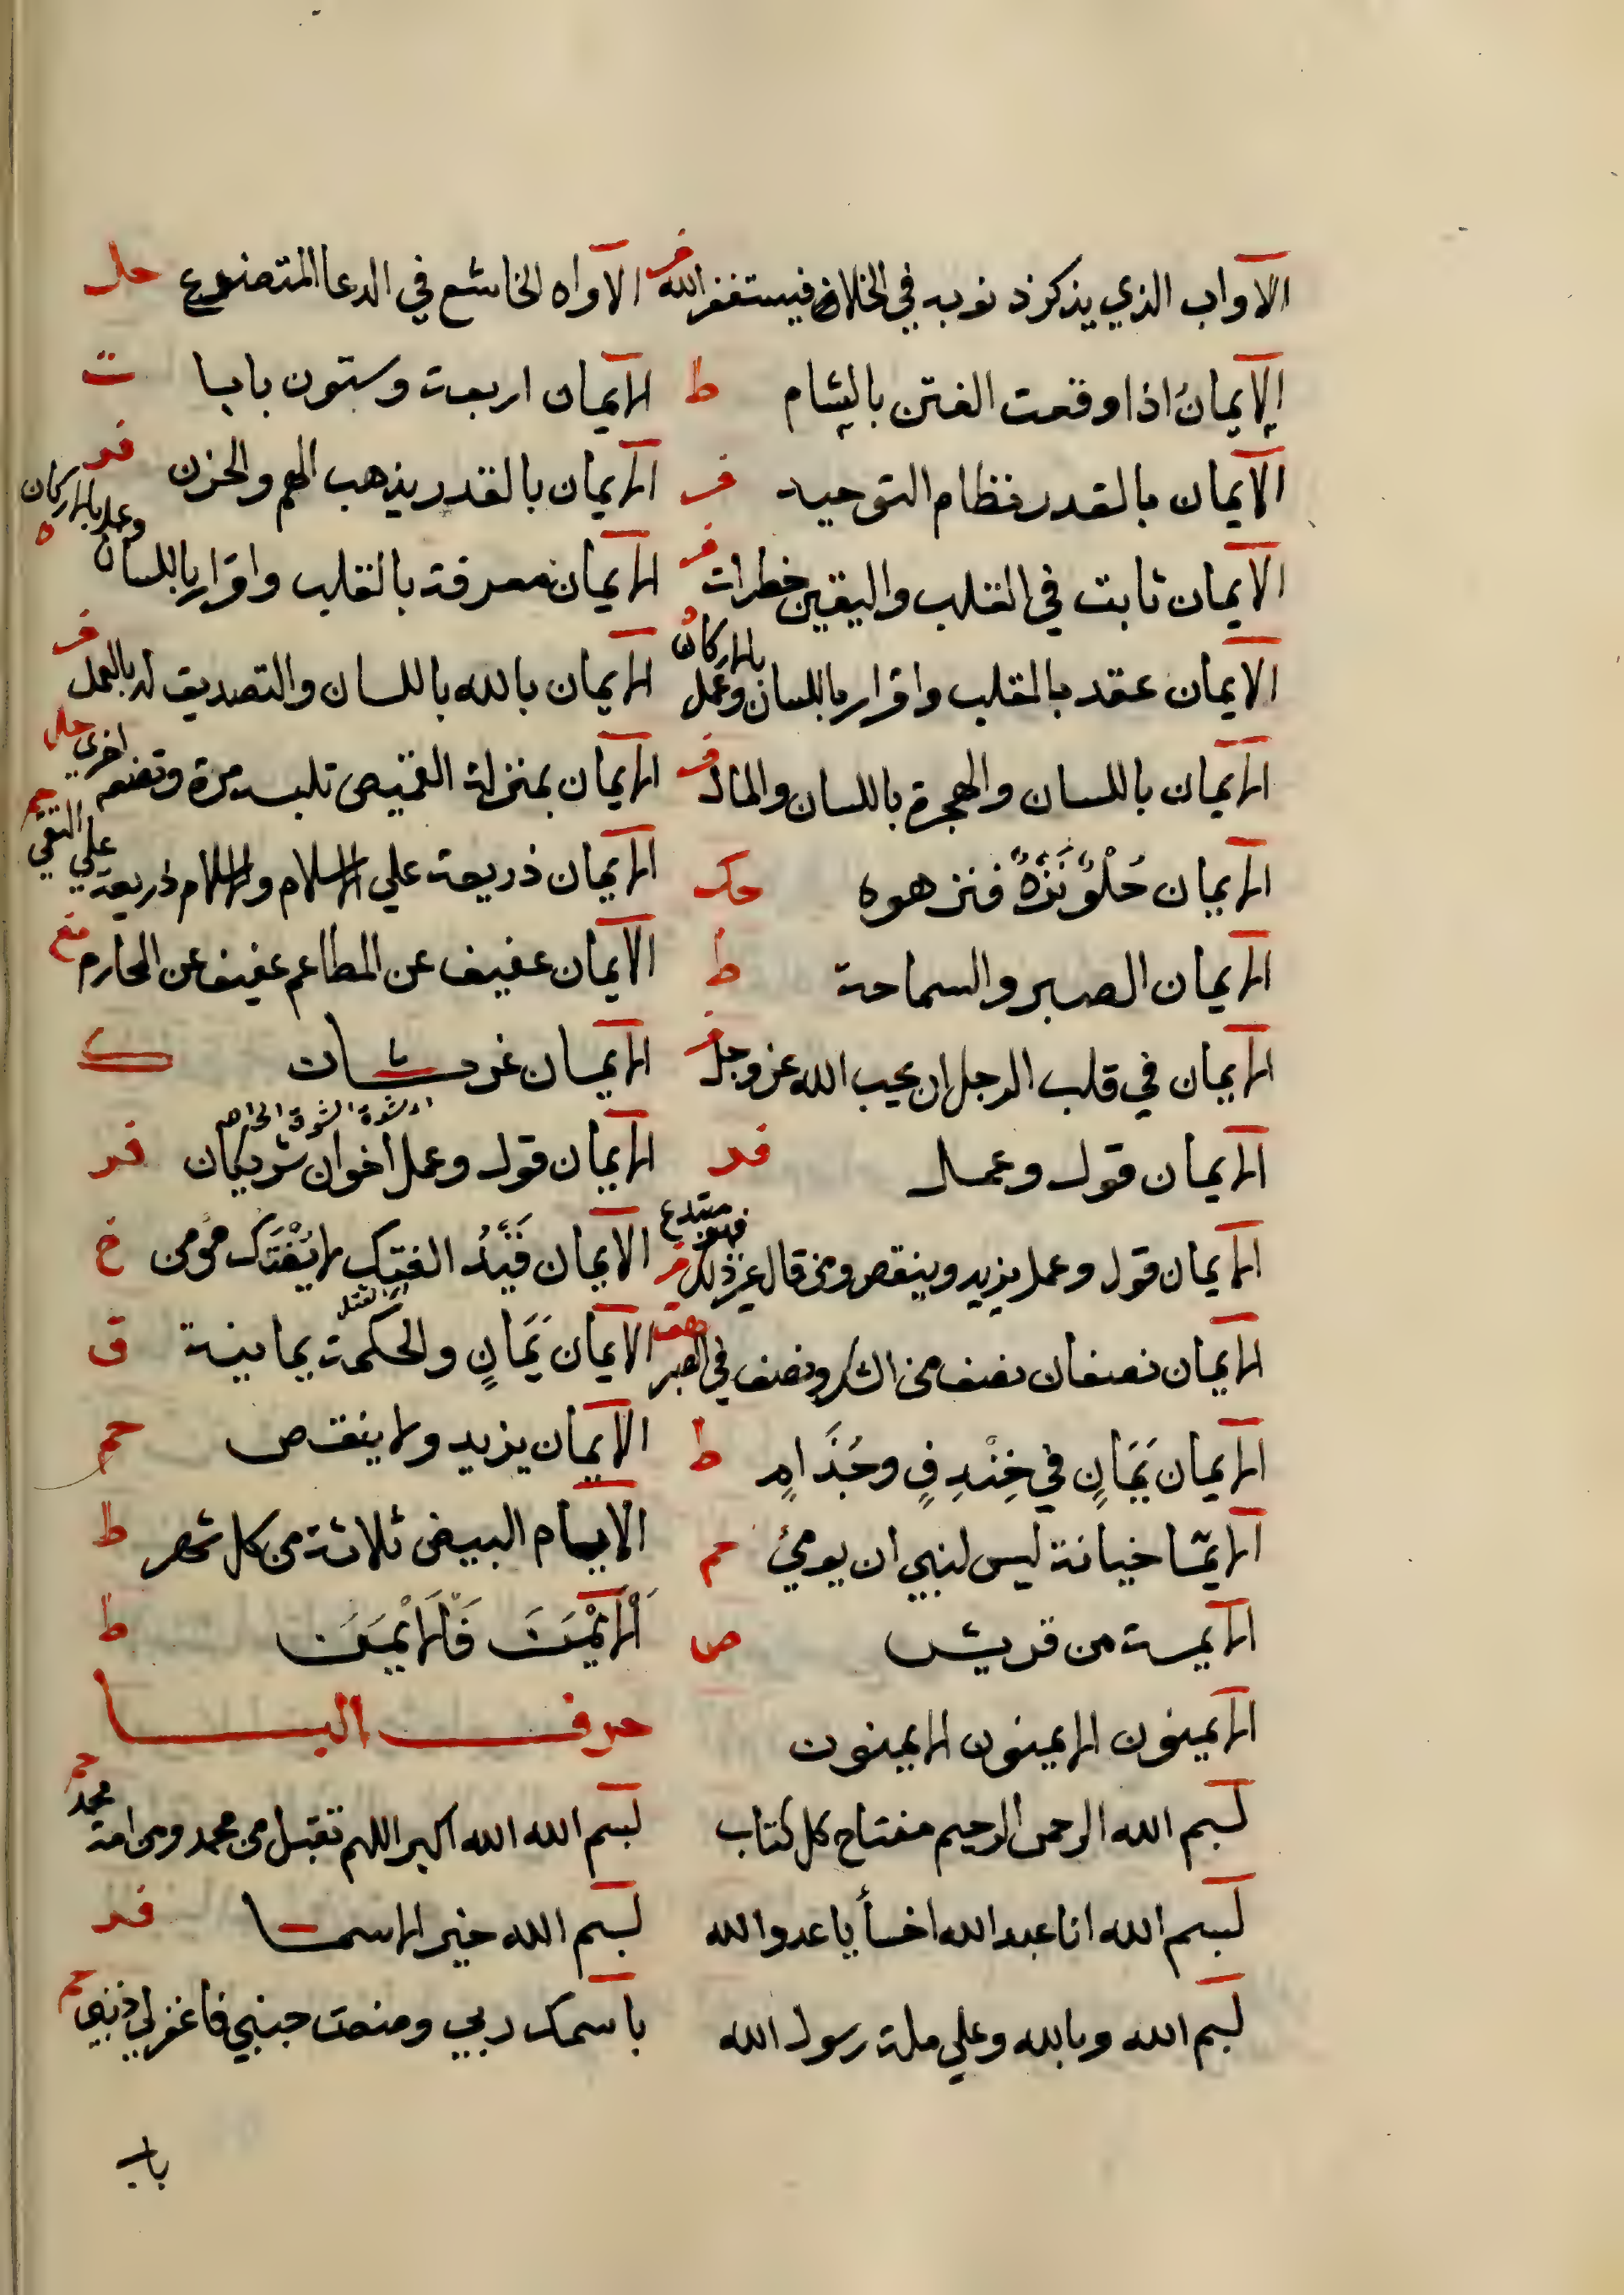 الاواب الذي يذكر ذنوبه في الخلاء فيستغفر الله فر الاواه الخاشع في الدعا المتضرع حل
الايمان اذا وقعت الفتن بالشام ط الايمان اربعة وستون بابا ت
الايمان بالقدر نظام التوحيد فر الايمان بالقدر يذهب الهم والحزن فر
الايمان ثابت في القلب واليقين خطرات فر الايمان معرفة بالقلب واقرار باللسان وعمل بالاركان ه
الايمان عقد بالقلب واقرار باللسان وعمل بالاركان الايمان بالله باللسان والتصديق له بالعمل فر
الايمان باللسان والهجرة باللسان والمال فر الايمان بمنزلة القميص تلبسه مرة وتضعه اخرى حل
الايمان حُلْوٌ نَزِهٌ فنزهوه حك الايمان ذريعة علي الاسلام والاسلام ذريعة علي التقي حم
الايمان الصبر والسماحة ط الايمان عفيف عن المطاعم عفيف عن المحارم
الايمان في قلب الرجل ان يحب الله عز وجل فر الايمان
الايمان قول وعمل فر الايمان قول وعمل اخوان شريكان فر
الايمان قول وعمل يزيد وينقص ومن قال غير ذلك فهو مبتدع فر الايمان قَيَّدُ الفتك لا يُفْتَك مؤمن خ
القتل
الايمان نصفان نصف من الشكر ونصف في الصبر هب الايمان يَمَانٍ والحكمة يمانية ق
الايمان يَمَانٍ في خِنْدِفٍ وجُذَامٍ ط الايمان يزيد ولا ينقص حم
الايمّا خيانة ليس لنبي ان يومئ حم الايام البيض ثلاثة من كل شهر ط
الايمة من قريش ص اَلْاَيْمَنَ فَالاَيْمَنَ ط
الايمنون الايمنون الايمنون حرف البا
بسم الله الرحمن الرحيم مفتاح كل كتاب بسم الله الله اكبر اللهم تقبل من محمد ومن امة محمد حم
بسم الله انا عبد الله اخسأ يا عدو الله بسم الله خير الاسما فر
بسم الله وبالله وعلي ملة رسول الله باسمك ربي وضعت جنبي فاغفر لي ذنبي حم
باب